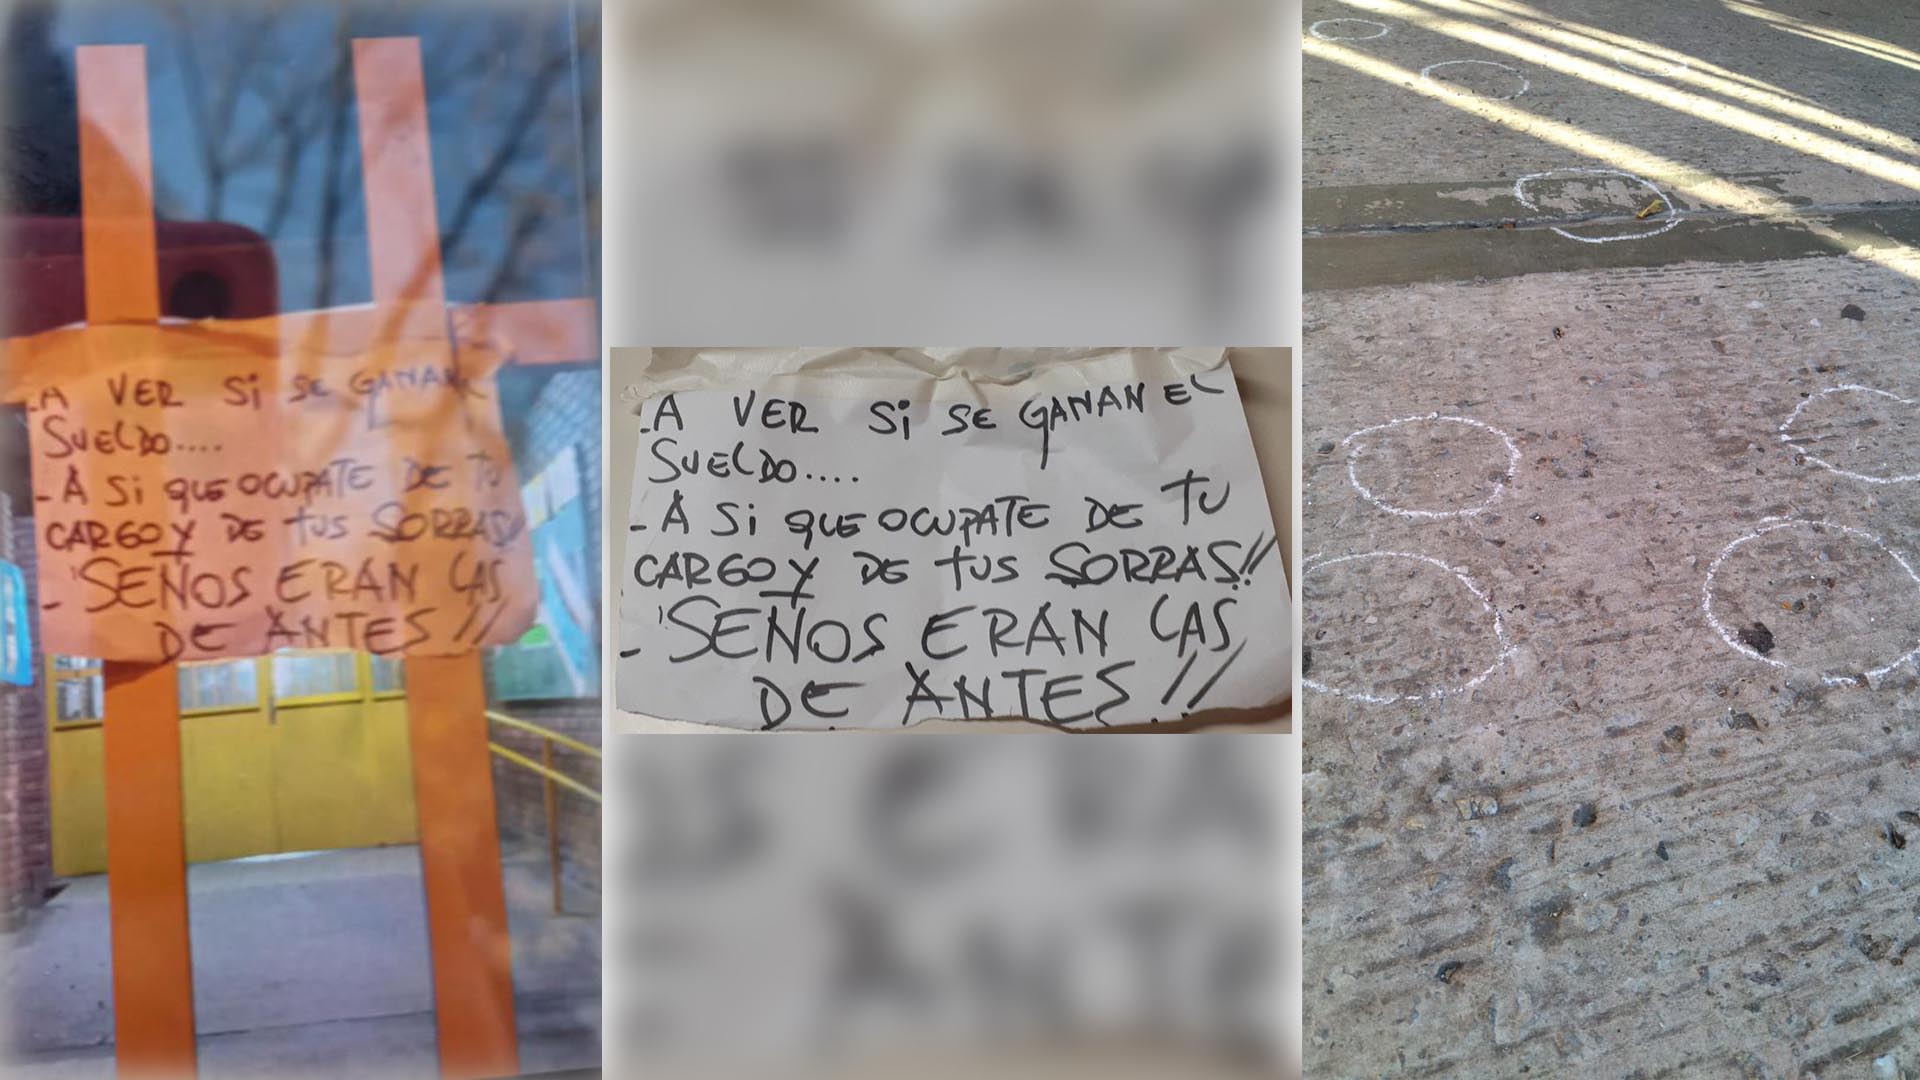 -A VER Si SE GANAN EL
SUELDO....
-A Si QUE OCUPATE DE TU
CARGO Y DE tUS SORRAS!!
- SEÑOS ERAN LAS
DE ANTES!!
-A VER Si SE GANAN EL
SUELDO....
-A Si QUE OCUPATE DE TU
CARGO Y DE tUS SORRAS!!
- SEÑOS ERAN LAS
DE ANTES!!